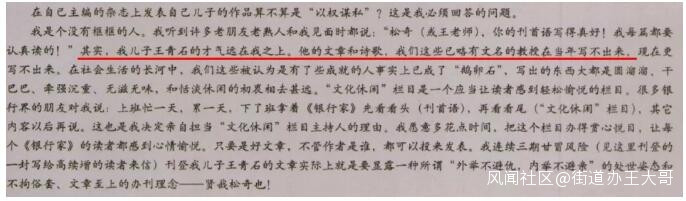 在自己主编的杂志上发表自己儿子的作品算不算是“以权谋私”？这是我必须回答的问题。
我是个没有框框的人。我听到许多老朋友老熟人和我见面时都说：“松奇（或王老师），你的刊首语写得真好！我每篇都要
认真读的！”其实，我儿子王青石的才气远在我之上。他的文章和诗歌，我们这些已略有文名的教授在当年写不出来，现在更
写不出来。在社会生活的长河中，我们这些被认为是有了些成就的人事实上已成了“鹅卵石”，写出的东西大都是圆溜溜、干
巴巴、牵强沉重、无滋无味，和恬淡休闲的初衷相去甚远。“文化休闲”栏目是一个应当让读者感到轻松愉悦的栏目。很多银
行界的朋友对我说：上班忙一天、累一天，下了班拿着《银行家》先看看头（刊首语），再看看尾（“文化休闲”栏目），其它
内容以后再说。这也是我决定亲自担当“文化休闲”栏目主持人的理由。我愿意多花点时间，把这个栏目办得赏心悦目，让每
个《银行家》的读者都感到心情愉悦。只要是好文章，不管作者是谁，都可以投来发表。我连续三期甘冒风险（见这里刊登的
一封写给高续增的读者来信）刊登我儿子王青石的文章实际上就是要显露一种所谓“外举不避仇，内举不避亲”的处世姿态和
不拘俗套、文章至上的办刊理念——贤我松奇也！
风闻社区@街道办王大哥